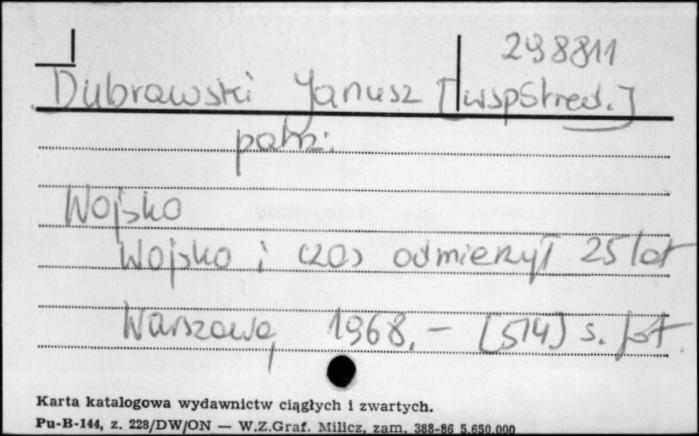 298811
Dubrowski Janusz [wspStred.]
patrz:
Wojsko
Wojsko i czas odmierzył 25 lat
Warszawa, 1968. - [514] s. fot.
Karta katalogowa wydawnictw ciągłych i zwartych.
Pu-B-144, z. 228/DW/ON — W.Z.Graf. Milicz, zam. 388-86 5.650.000